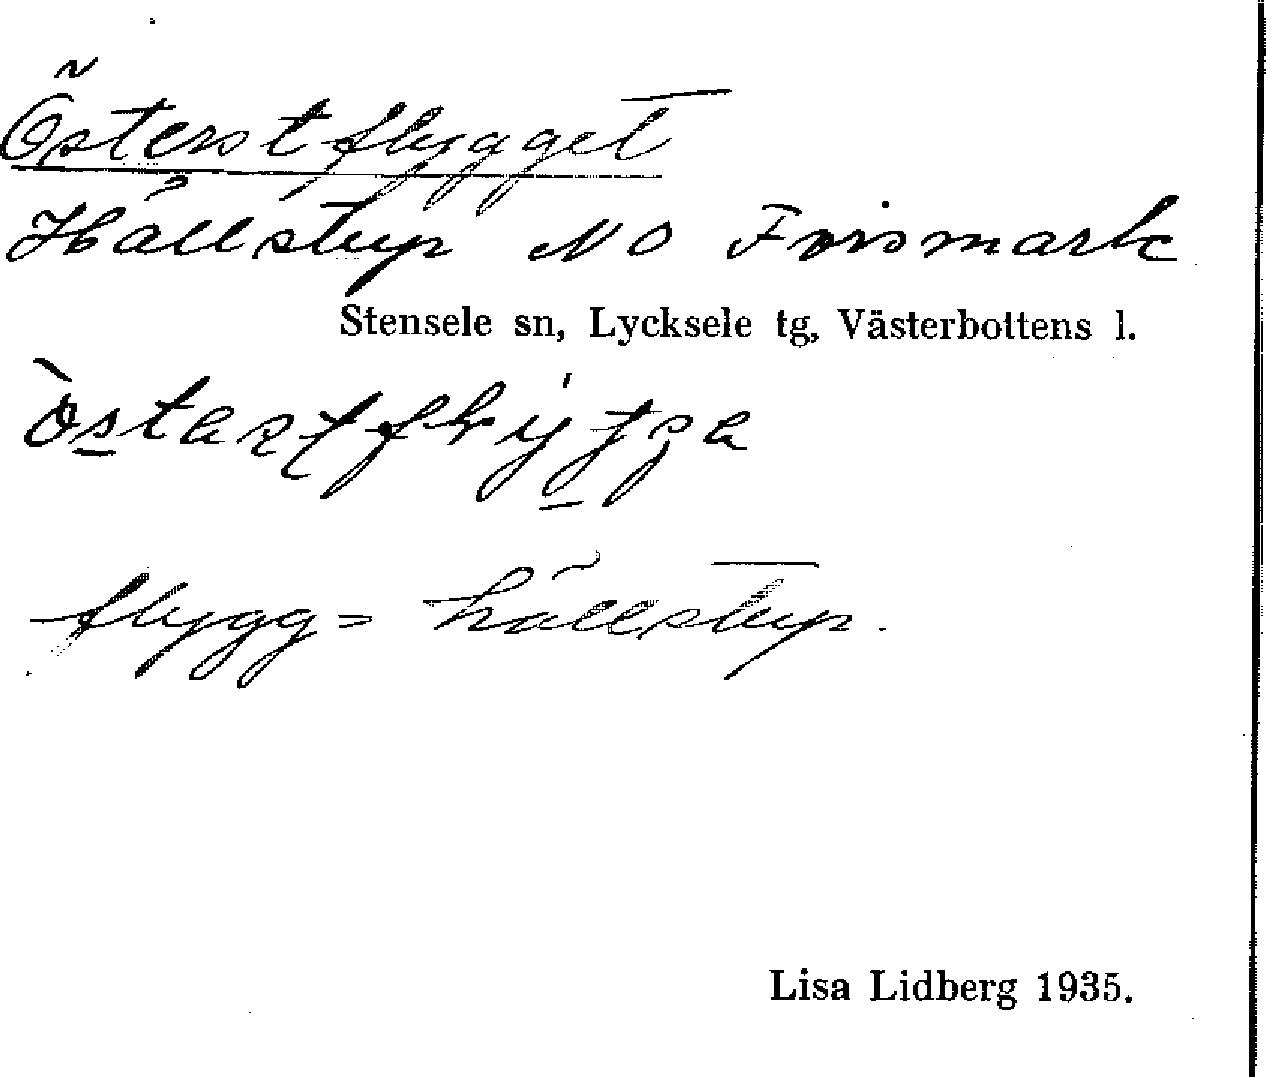 Österstflygget
Hällstup NO Forsmark
Stensele sn, Lycksele tg, Västerbottens l.
flygg = hällstup.
Lisa Lidberg 1935.